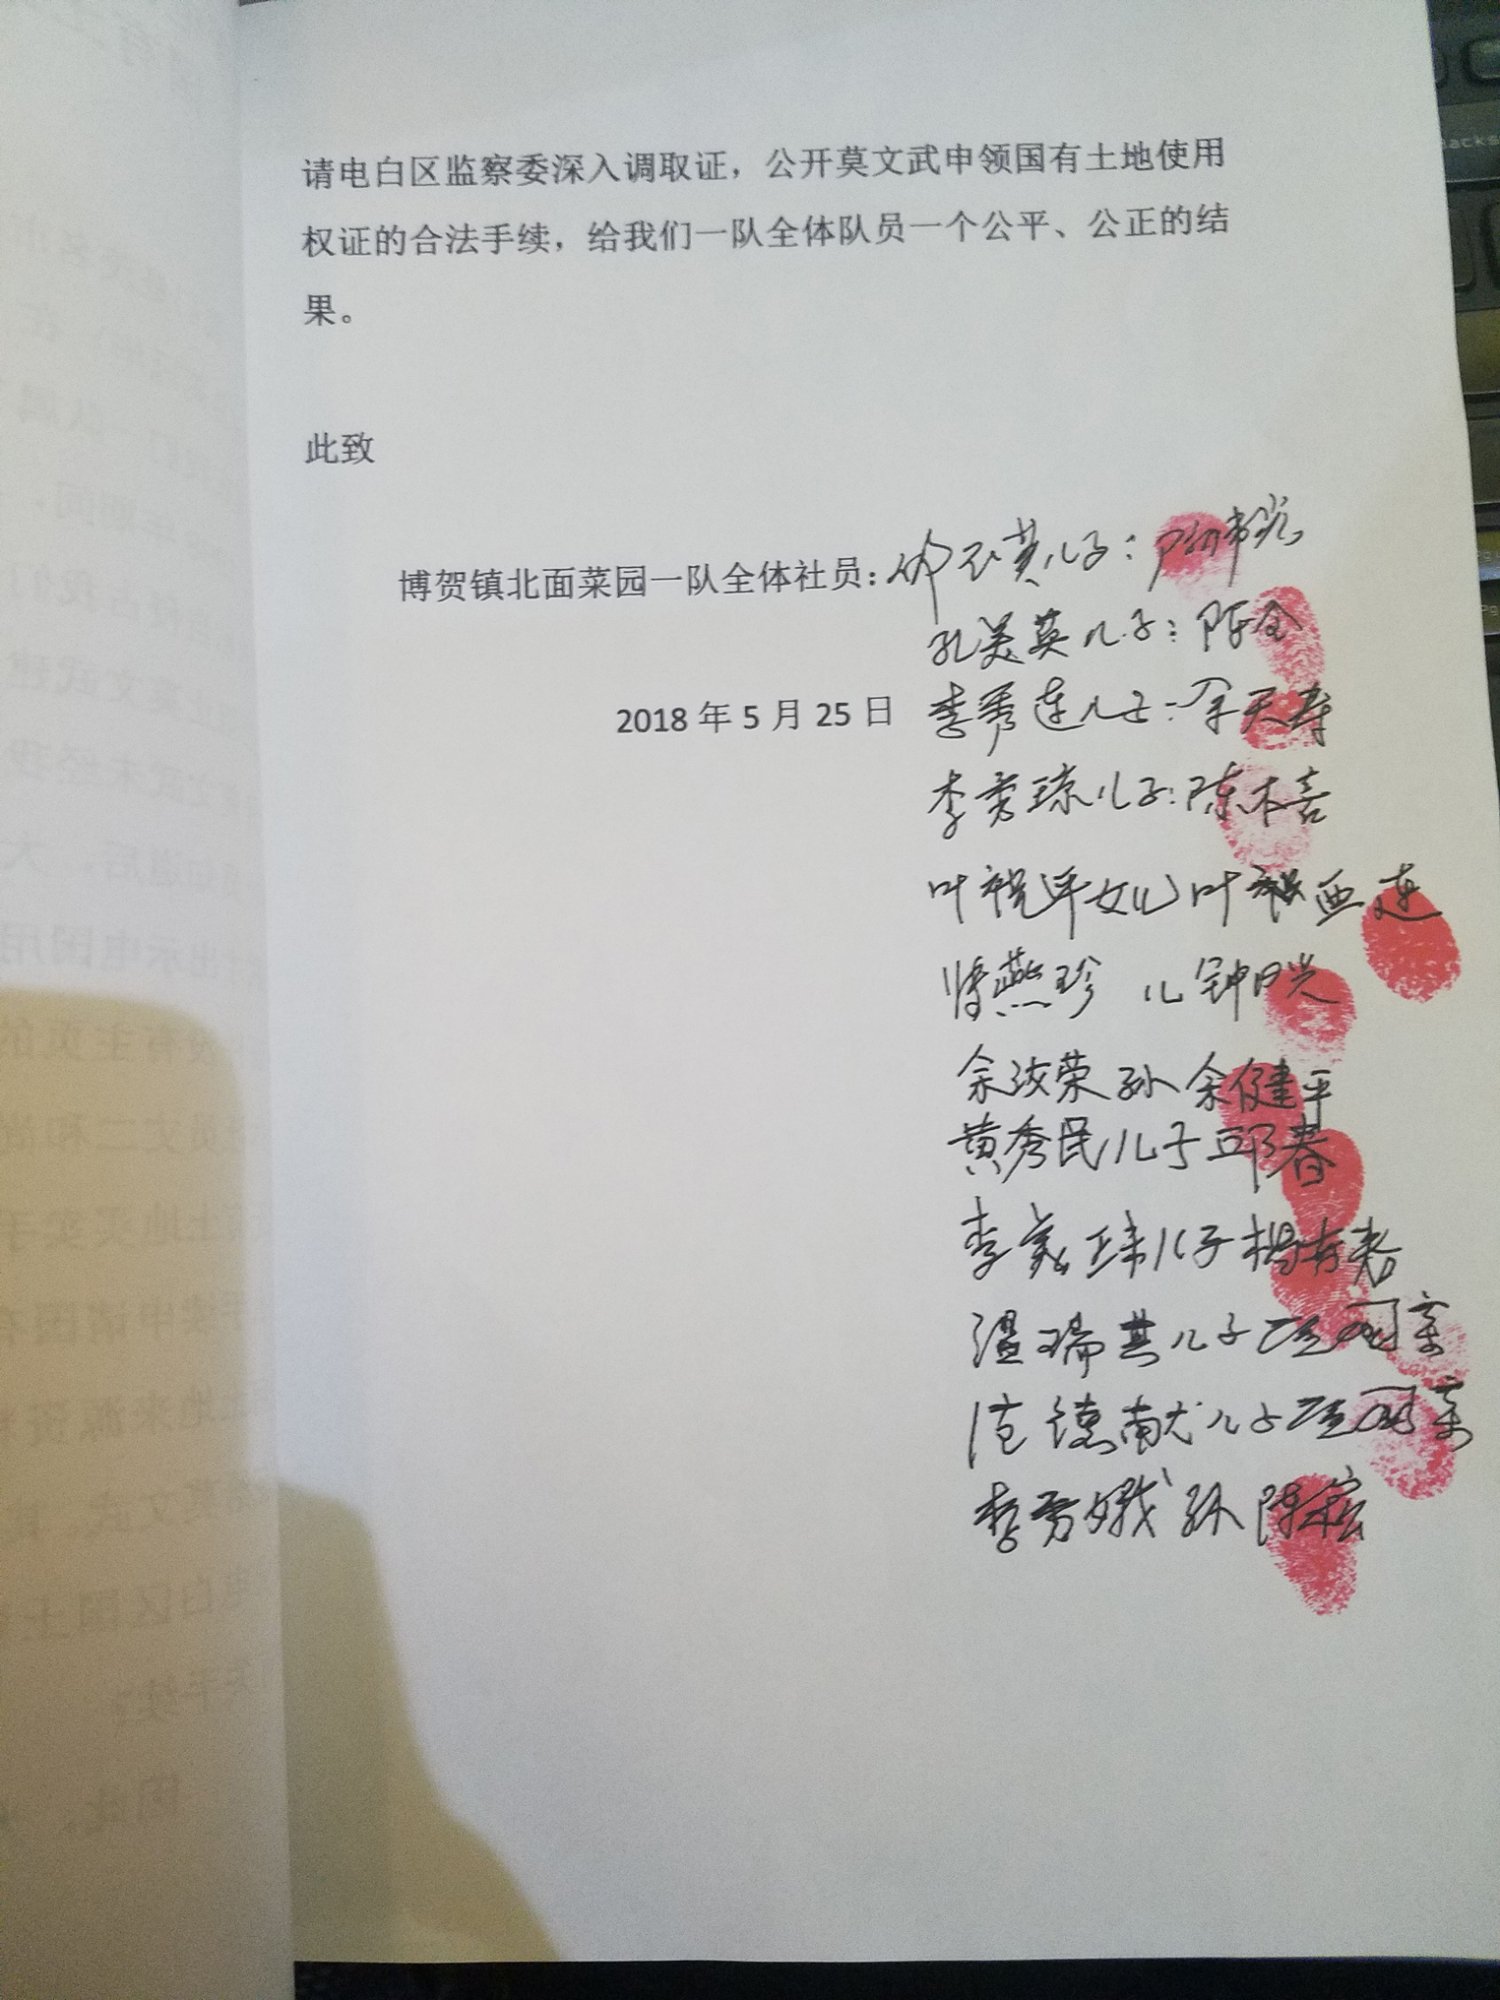 请电白区监察委深入调取证，公开莫文武申领国有土地使用
权证的合法手续，给我们一队全体队员一个公平、公正的结
果。
此致
博贺镇北面菜园一队全体社员：
英儿子：
孔美英儿子：陈全
2018年5月25日
李秀连儿子：余天寿
李秀琼儿子：陈木喜
叶祝年女儿叶亚连
燕珍 儿钟日兴
余汝荣孙余健平
黄秀民儿子邱春
李儿子杨春
温瑞其儿子
范德献儿子
李秀娥孙陈宏